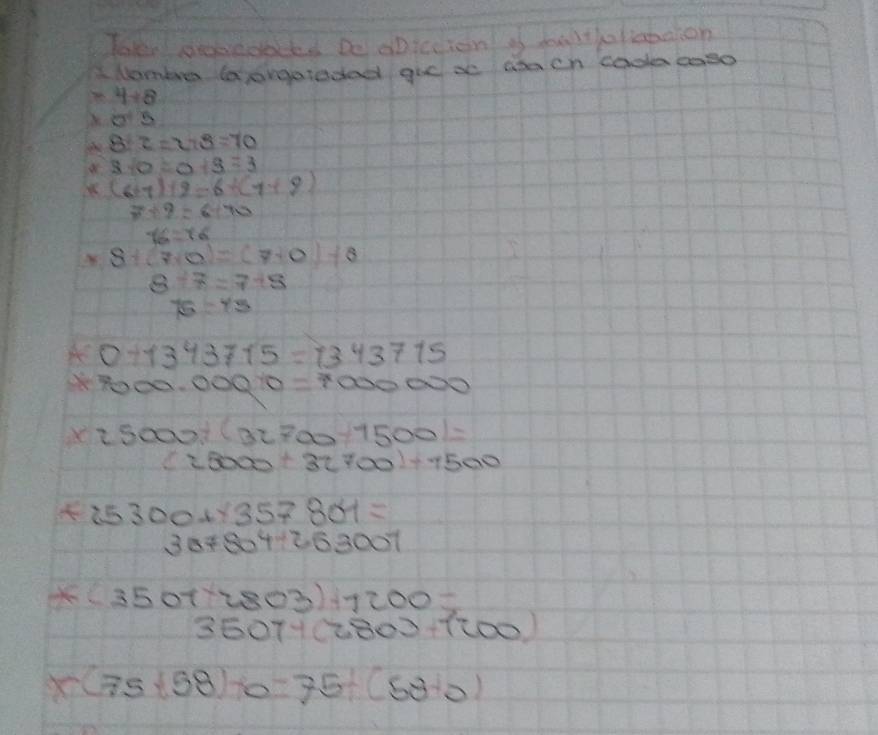 Taller propiedades De aDiccion y multiplicacion
1 Nombra la propiedad que se usa en cada caso
* 4+8
* 0+5
* 8+2=2+8=10
* 3+0=0+3=3
* (6+1)+9=6+(1+9)
7+9=6+10
16=16
* 8+(7+0)=(7+0)+8
8+7=7+8
15=15
* 0+1343715=1343715
* 7000.000+0=7000000
* 25000+(32700+1500)=
(25000+32700)+1500
* 253001+357801=
357804+253001
* (3501+2803)+1200=
3501+(2803+1200)
* (75+58)+0=75+(58+0)